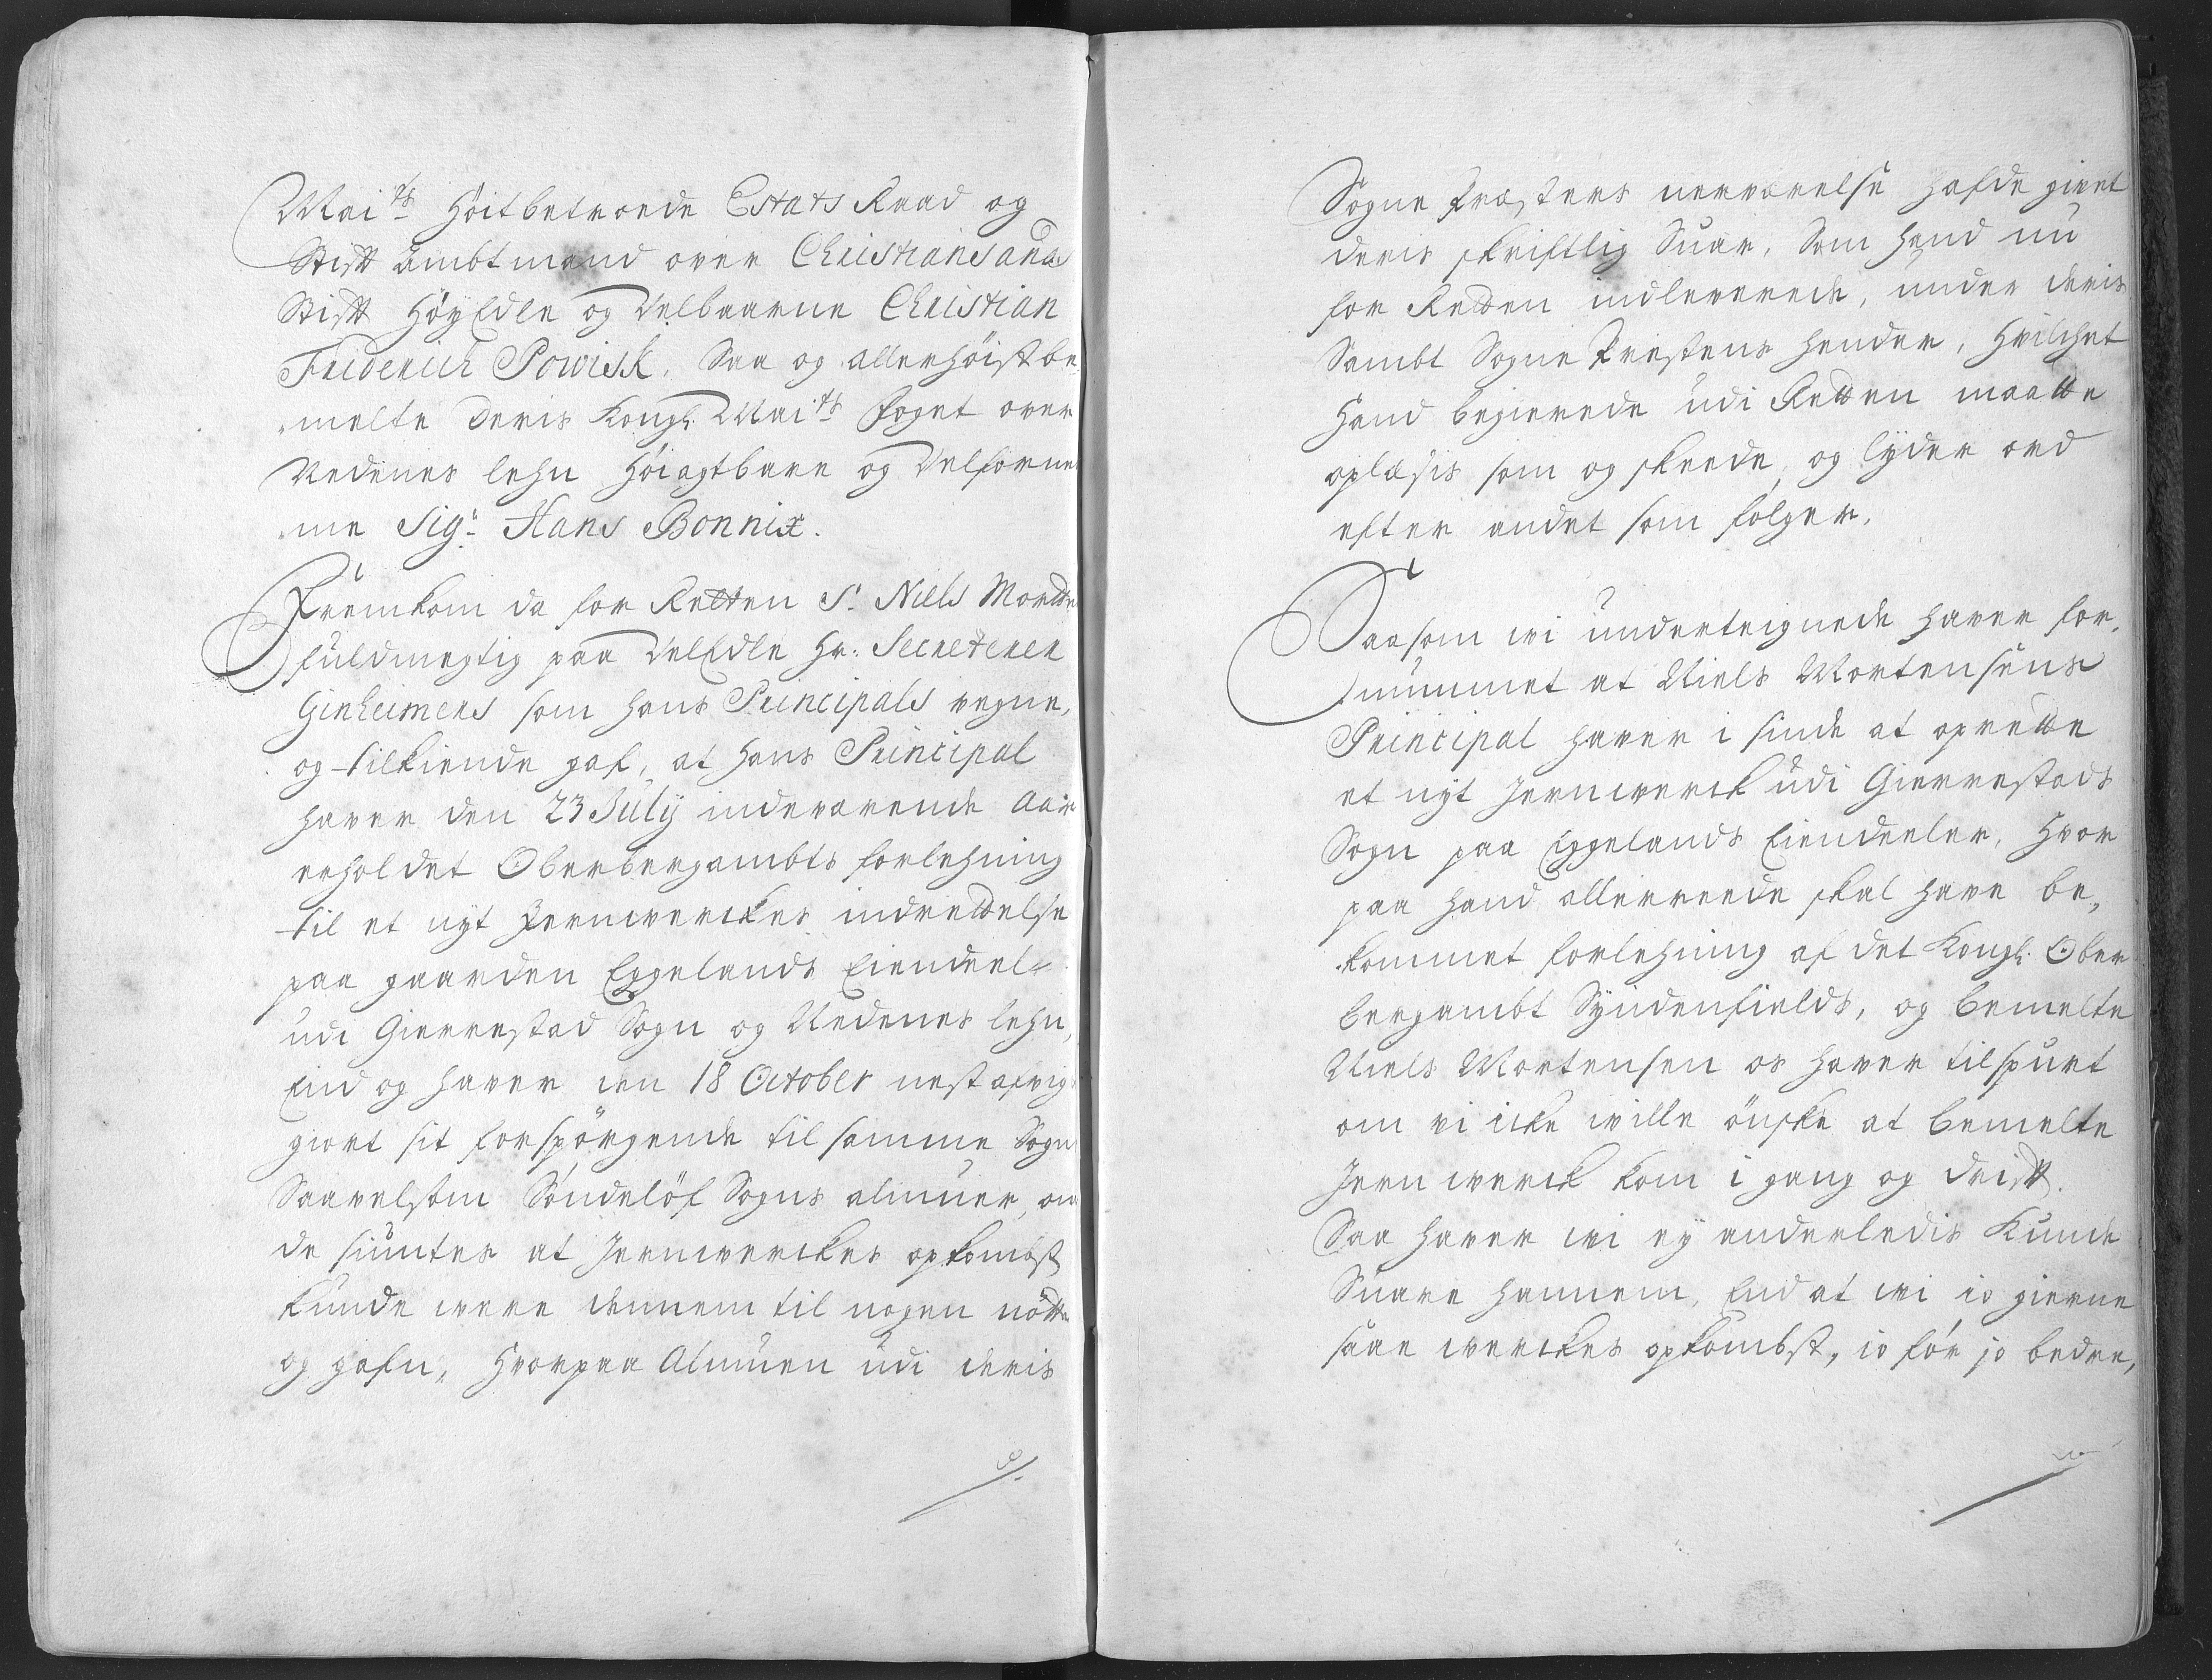 Mai.ts Höitbetroede Estats Raad og
Stifft Ambtmand over Christiansands
Stifft Høy Edle og Velbaarne Christian
Friderich Powisk. Saa og allerhöist be
melte Deris Kongl. Mai.ts foget over
Nedenes lehn Höiagtbare og Velforne
me Sig.r Hans Bonnix.
Fremkom da for Retten S.r Niels Mortens
fuldmegtig paa VelEdle Hr. Secreterer
Ginheimers som hans Principals vegne,
og tilkiende gaf, at hans Principal
haver den 23 July indeværende Aar
erholdet Oberbergambts forlehning
til et nyt Jernwerckes indrettelse
paa gaarden Eggelands Eiendeel
udi Gierrestad Sogn og Nedenes lehn,
End og haver den 18 October nestafvigt
giort sit forspørgende til samme Sogn
Saavelsom Sóndelöf Sogns almuer, om
de siuntes at Jernwerckes opkombst
kunde were dennem til nogen nötte
og gafn, Hvorpaa Almuen udi deris
Sogne Præsters nerværelse hafde givet
deris skriftlig Suar, Som hand nu
for Retten indleverede, under deris
Sambt Sogne Prestens hender, Hvilchet
Hand begierede udi Retten maatte
oplæsis som og skeede, og lyder ord
efter andet som folger.
Saasom wi underteignede haver for,
nummet at Niels Mortensens
Principal haver i sinde at oprette
et nyt Jernwerck udi Gierrestads
Sogn paa Eggelands Eiendeeler, Hvor
paa hand allerreede skal have be,
kommet forlehning af det Kongl. Ober
bergambt Syndenfields, og bemelte
Niels Mortensen os haver tilspurt
om vi icke wille önske at bemelte
Jern werck kom i gang og drifft.
Saa haver wi ey anderledis kunde
Suare hannem, End at wi io gierne
saae werckes opkombst, io för jo bedre,